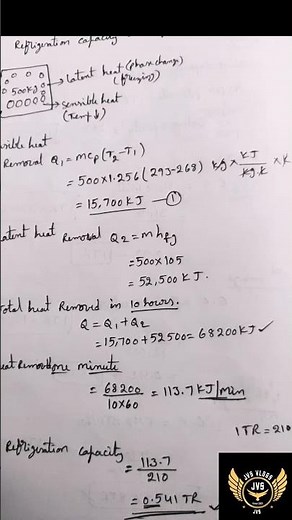 Refrigeration capacity
500kg
Latent heat (phase change)
(freezing)
sensible heat
(Tem↓)
sible heat
Removal Q₁ = mCp(T₂-T₁)
= 500×1.256 (293-268) kg × KJ/kg.k × K
= 15,700 KJ — ①
atent heat Removal Q₂ = mhfg
=500×105
= 52,500 KJ.
otal heat Removed in 10 hours.
Q = Q₁+Q₂
= 15,700+52500 = 68200KJ ✓
eat Removed one minute
= 68200/10×60 = 113.7 KJ/min
1TR = 210
Refrigeration capacity
= 113.7/210
= 0.541 TR
JVS VLOGS
JVS
JVS